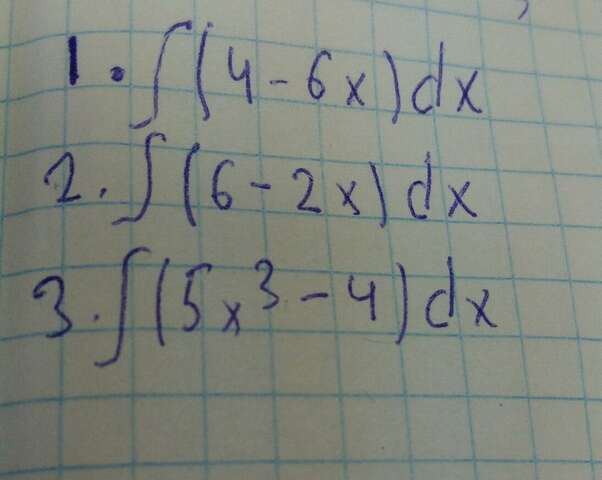 1. ∫(4-6x)dx
2. ∫(6-2x)dx
3. ∫(5x³-4)dx